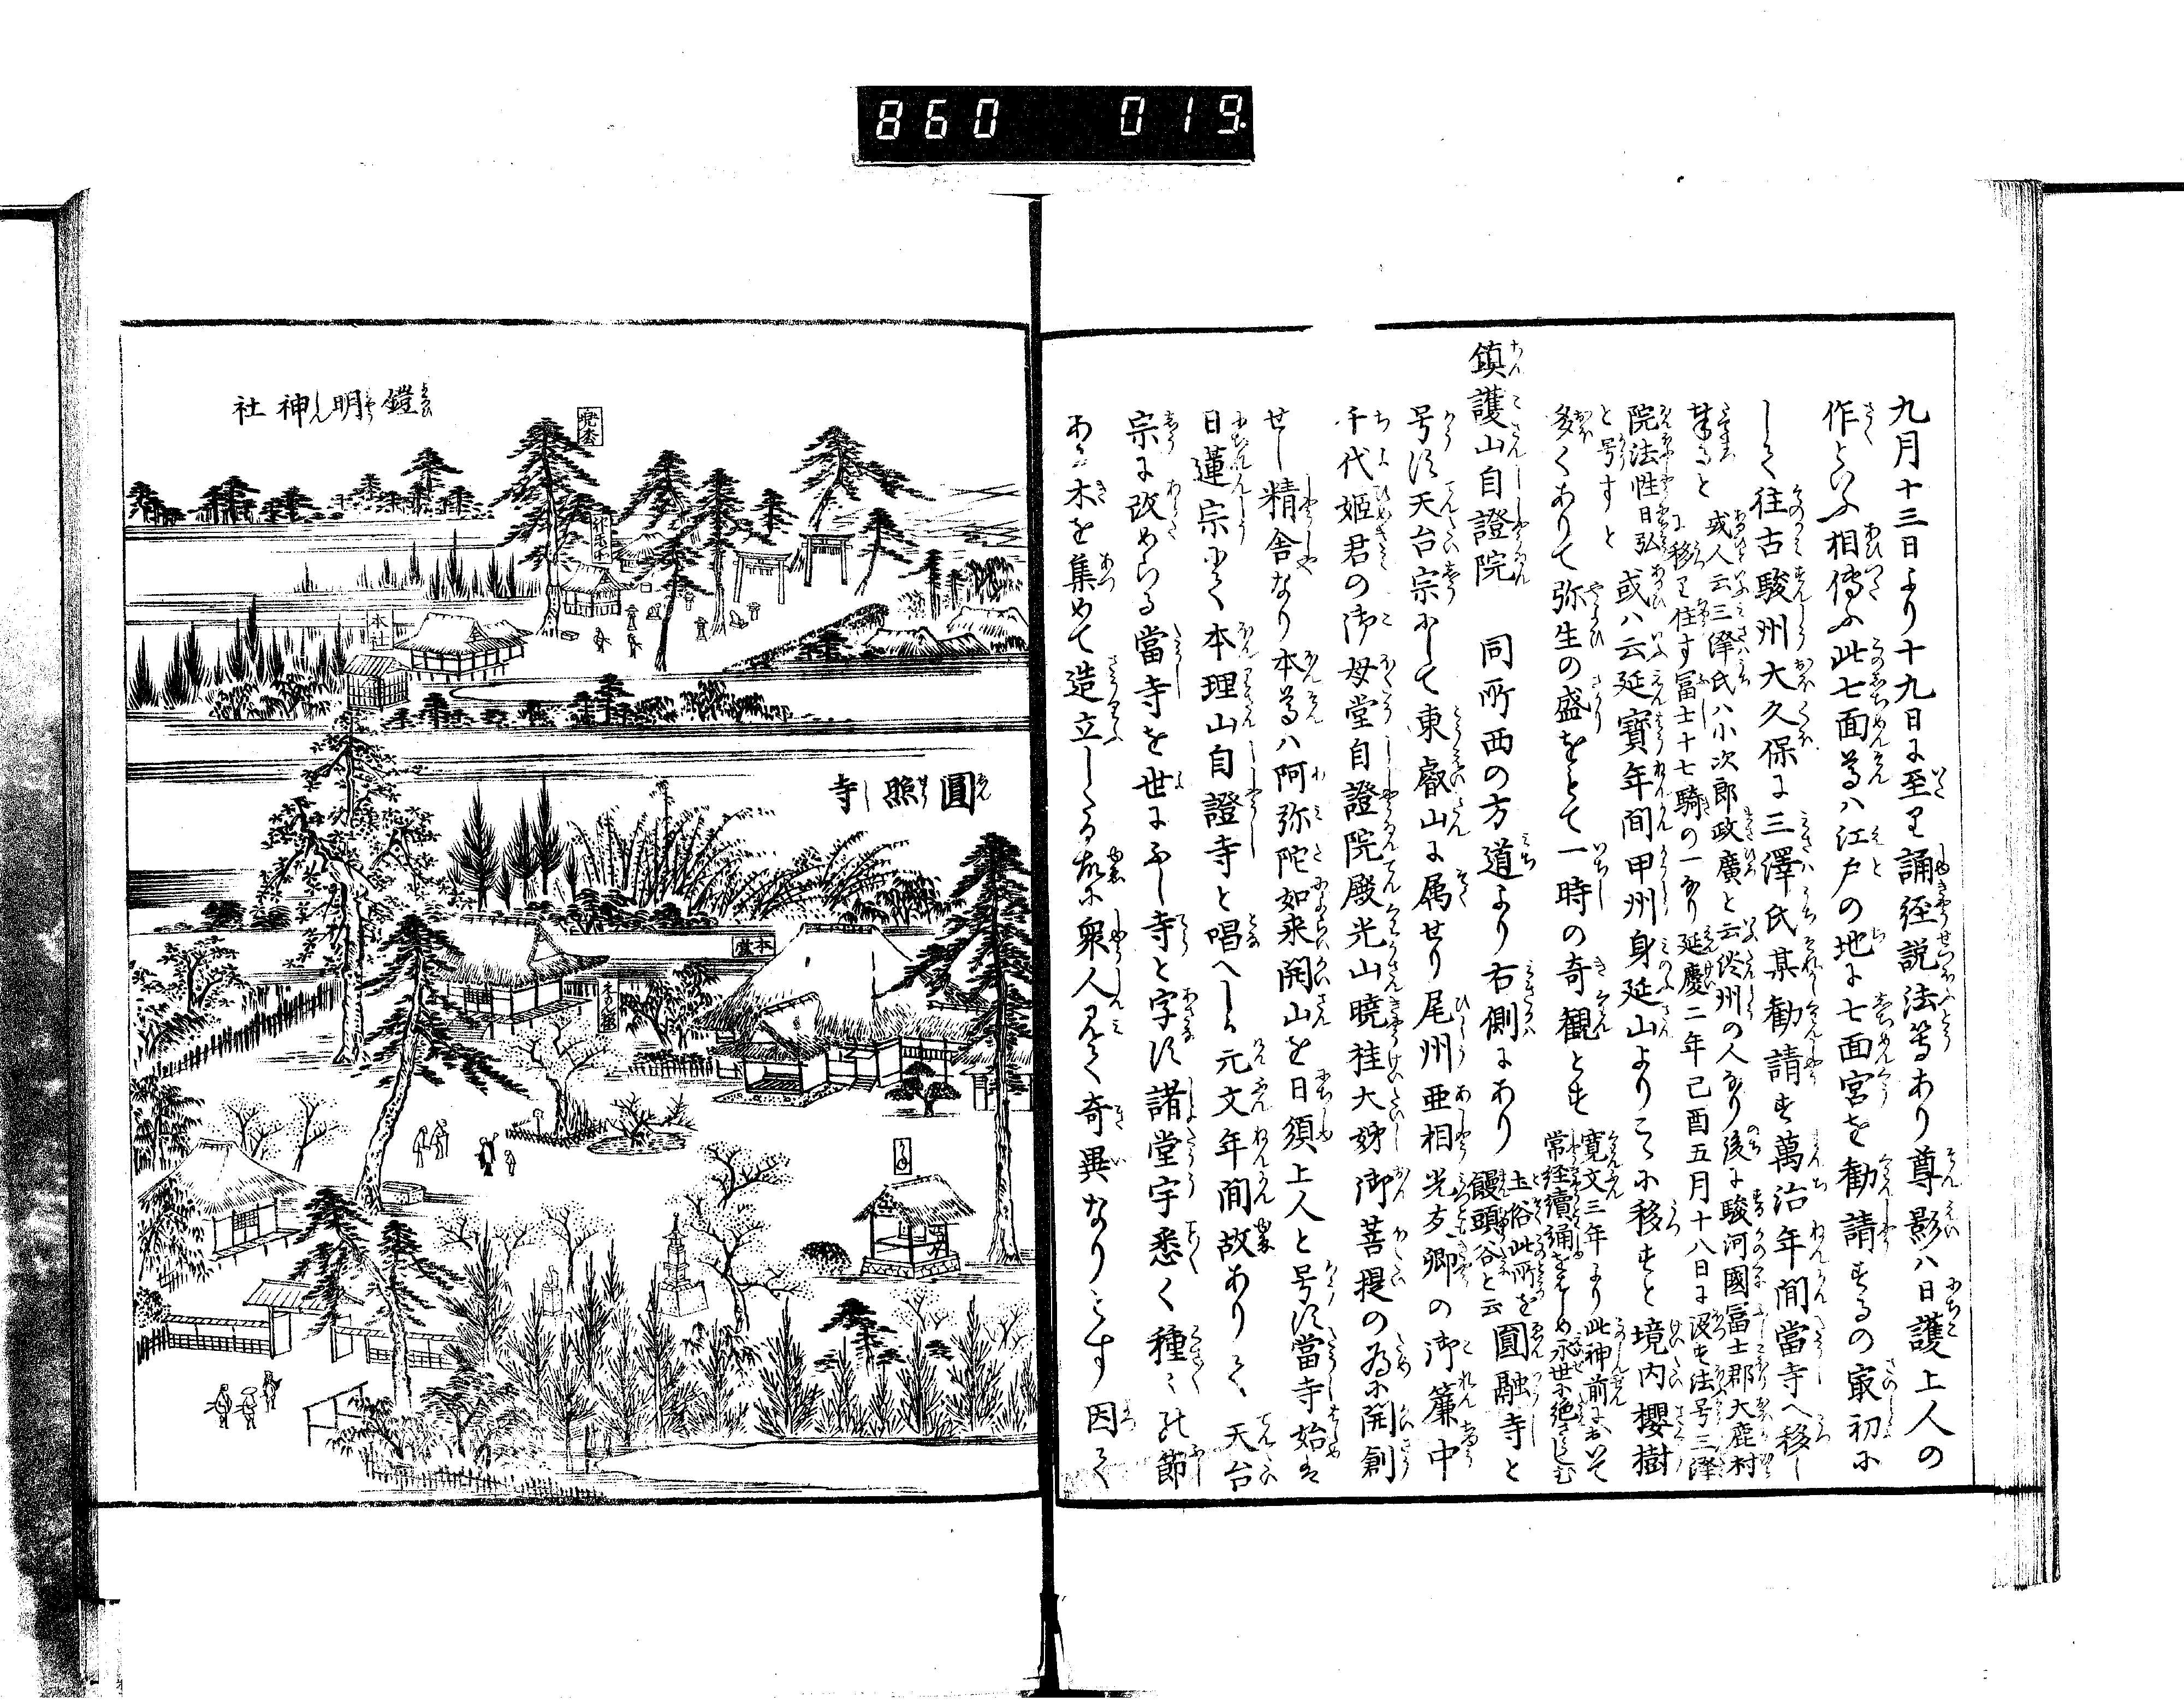 860 019
九月十三日より十九日に至り誦経説法等あり尊影ハ日護上人の
作といふ相傳ふ此七面尊ハ江戸の地に七面宮を勧請するの最初に
して往古駿州大久保に三澤氏某勧請す萬治年間當寺へ移し
奉ると 或人云三澤氏ハ小次郎政廣と云 州の人なり後に駿河國冨士郡大鹿村
に移り住す冨士十七騎の一なり延慶二年己酉五月十八日に没す法号三澤
院法性日弘 或ハ云延寳年間甲州身延山よりこゝに移すと 境内櫻樹
と号すと
多くありて弥生の盛をとて一時の奇観とす 寛文三年より此神前において
常経讀誦をはしめ永世に絶さらしむ
鎮護山自證院 同所西の方道より右側にあり 土俗此所を
饅頭谷と云 圓融寺と
号す天台宗にして東叡山に属せり尾州亜相光友卿の御簾中
千代姫君の御母堂自證院殿光山暁桂大姉御菩提の為に開創
せし精舎なり本尊ハ阿弥陀如来開山を日須上人と号す當寺始は
日蓮宗にて本理山自證寺と唱へしを元文年間故ありて、天台
宗に改めらる當寺を世にふし寺と字す諸堂宇悉く種々の節
ある木を集めて造立したる故に衆人見て奇異なりとす因て
鎧明神社
兜松
本社
圓照寺
本堂
かね